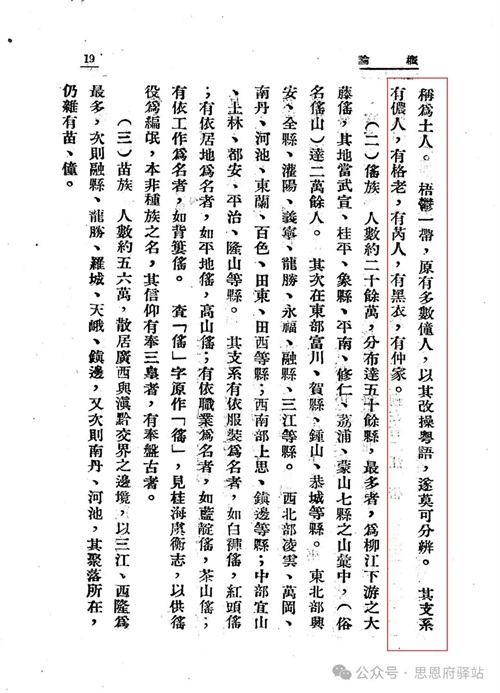 概論
19
稱為土人。　梧鬱一帶，原有多數僮人，以其改操粵語，遂莫可分辨。　其支系
有儂人，有格老，有芮人，有黑衣，有仲家。
（二）傜族　人數約二十餘萬，分布達五十餘縣，最多者，為柳江下游之大
藤傜，其地當武宣、桂平、象縣、平南、修仁、荔浦、蒙山七縣之山彙中，（俗
名傜山）達二萬餘人。　其次在東部富川、賀縣、鍾山、恭城等縣。　東北部興
安、全縣、灌陽、義寧、龍勝、永福、融縣、三江等縣。　西北部凌雲、萬岡、
南丹、河池、東蘭、百色、田東、田西等縣；西南部上思、鎮邊等縣；中部宜山
、上林、都安、平治、隆山等縣。　其支系有依服裝為名者，如白褲傜，紅頭傜
；有依居地為名者，如平地傜，高山傜；有依職業為名者，如藍靛傜，茶山傜；
有依工作為名者，如背簍傜。　查「傜」字原作「徭」，見桂海虞衡志，以供徭
役為編氓，本非種族之名，其信仰有奉三皇者，有奉盤古者。
（三）苗族　人數約五六萬，散居廣西與滇黔交界之邊境，以三江、西隆為
最多，次則融縣、龍勝、羅城、天峨、鎮邊，又次則南丹、河池，其聚落所在，
仍雜有苗、僮。
公众号·思恩府驿站